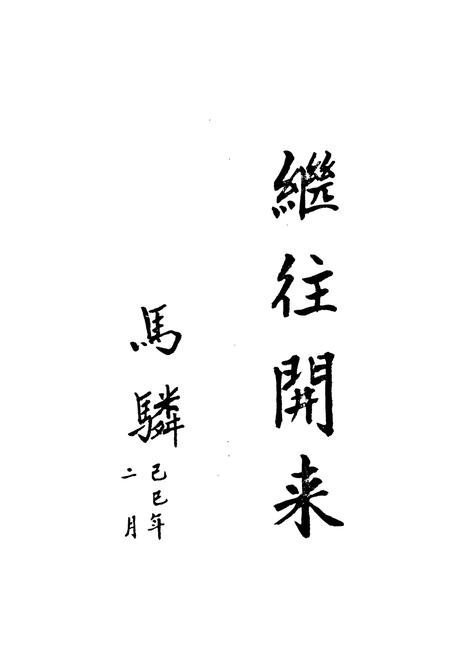 繼往開来
馬驎
己巳年
二月